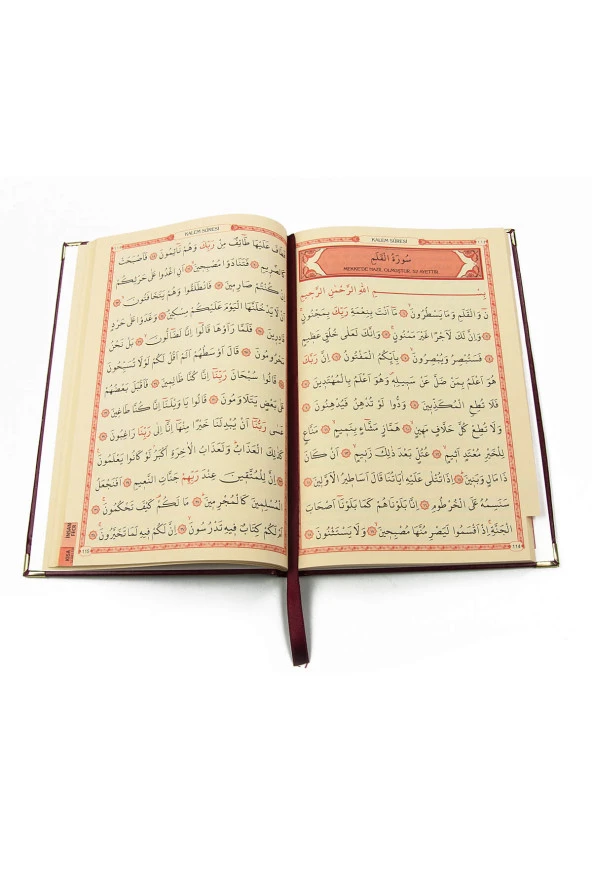 KALEM SÛRESİ
سُورَةُ الْقَلَمِ
MEKKE'DE NAZİL OLMUŞTUR, 52 AYETTİR.
بِسْمِ اللّٰهِ الرَّحْمٰنِ الرَّحِيمِ
نٓ وَالْقَلَمِ وَمَا يَسْطُرُونَ مَٓا اَنْتَ بِنِعْمَةِ رَبِّكَ بِمَجْنُونٍ
وَاِنَّ لَكَ لَاَجْرًا غَيْرَ مَمْنُونٍ وَاِنَّكَ لَعَلٰى خُلُقٍ عَظِيمٍ
فَسَتُبْصِرُ وَيُبْصِرُونَ بِاَيِّكُمُ الْمَفْتُونُ اِنَّ رَبَّكَ
هُوَ اَعْلَمُ بِمَنْ ضَلَّ عَنْ سَبِيلِهِ وَهُوَ اَعْلَمُ بِالْمُهْتَدِينَ
فَلَا تُطِعِ الْمُكَذِّبِينَ وَدُّوا لَوْ تُدْهِنُ فَيُدْهِنُونَ
وَلَا تُطِعْ كُلَّ حَلَّافٍ مَهِينٍ هَمَّازٍ مَشَّٓاءٍ بِنَمِيمٍ مَنَّاعٍ
لِلْخَيْرِ مُعْتَدٍ اَثِيمٍ عُتُلٍّ بَعْدَ ذٰلِكَ زَنِيمٍ اَنْ كَانَ
ذَا مَالٍ وَبَنِينَ اِذَا تُتْلٰى عَلَيْهِ اٰيَاتُنَا قَالَ اَسَاطِيرُ الْاَوَّلِينَ
سَنَسِمُهُ عَلَى الْخُرْطُومِ اِنَّا بَلَوْنَاهُمْ كَمَا بَلَوْنَٓا اَصْحَابَ
الْجَنَّةِ اِذْ اَقْسَمُوا لَيَصْرِمُنَّهَا مُصْبِحِينَ وَلَا يَسْتَثْنُونَ
114
KALEM SÛRESİ
فَطَافَ عَلَيْهَا طَٓائِفٌ مِنْ رَبِّكَ وَهُمْ نَٓائِمُونَ فَاَصْبَحَتْ
كَالصَّرِيمِ فَتَنَادَوْا مُصْبِحِينَ اَنِ اغْدُوا عَلٰى حَرْثِكُمْ
اِنْ كُنْتُمْ صَارِمِينَ فَانْطَلَقُوا وَهُمْ يَتَخَافَتُونَ
اَنْ لَا يَدْخُلَنَّهَا الْيَوْمَ عَلَيْكُمْ مِسْكِينٌ وَغَدَوْا عَلٰى حَرْدٍ
قَادِرِينَ فَلَمَّا رَاَوْهَا قَالُٓوا اِنَّا لَضَٓالُّونَ بَلْ نَحْنُ
مَحْرُومُونَ قَالَ اَوْسَطُهُمْ اَلَمْ اَقُلْ لَكُمْ لَوْلَا تُسَبِّحُونَ
قَالُوا سُبْحَانَ رَبِّنَٓا اِنَّا كُنَّا ظَالِمِينَ فَاَقْبَلَ بَعْضُهُمْ
عَلٰى بَعْضٍ يَتَلَاوَمُونَ قَالُوا يَا وَيْلَنَٓا اِنَّا كُنَّا طَاغِينَ
عَسٰى رَبُّنَٓا اَنْ يُبْدِلَنَا خَيْرًا مِنْهَٓا اِنَّٓا اِلٰى رَبِّنَا رَاغِبُونَ
كَذٰلِكَ الْعَذَابُ وَلَعَذَابُ الْاٰخِرَةِ اَكْبَرُ لَوْ كَانُوا يَعْلَمُونَ
اِنَّ لِلْمُتَّقِينَ عِنْدَ رَبِّهِمْ جَنَّاتِ النَّعِيمِ اَفَنَجْعَلُ
الْمُسْلِمِينَ كَالْمُجْرِمِينَ مَا لَكُمْ كَيْفَ تَحْكُمُونَ
اَمْ لَكُمْ كِتَابٌ فِيهِ تَدْرُسُونَ اِنَّ لَكُمْ فِيهِ لَمَا تَخَيَّرُونَ
115